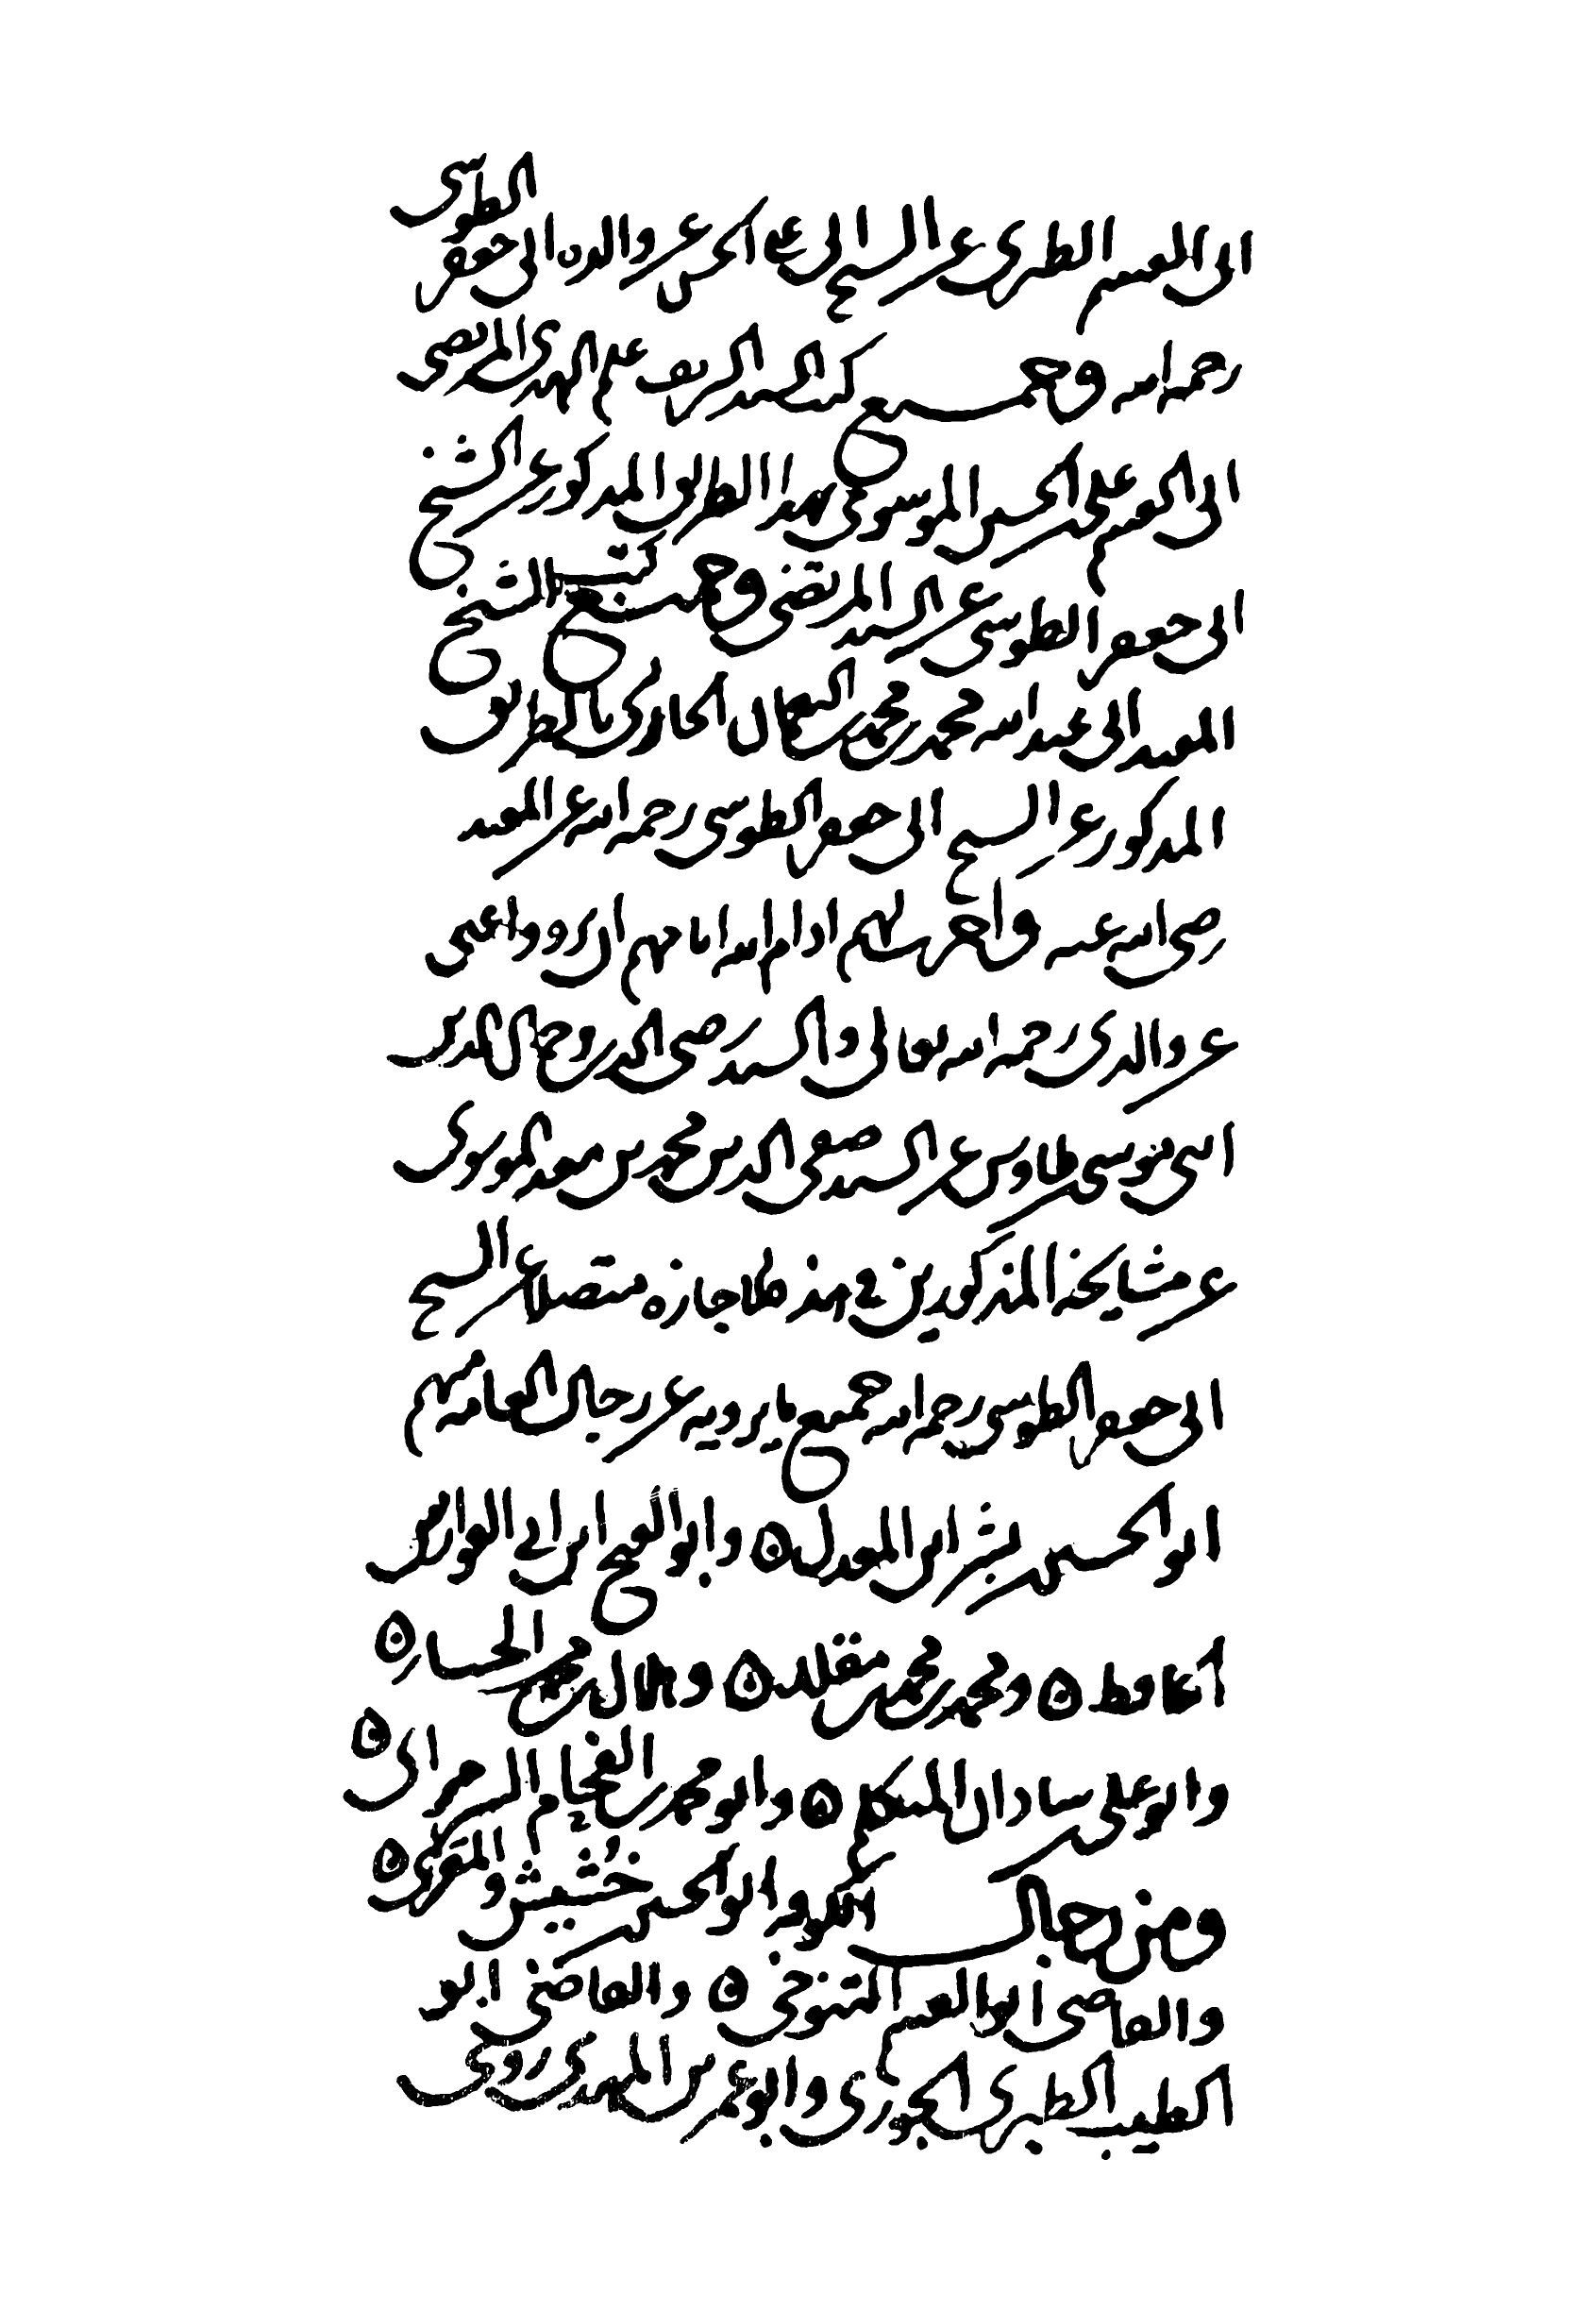 ابى القسم الطبرى عن الشيخ ابى على الحسن عن والده ابى جعفر الطوسى
رحمه الله وجميع كتب السيد الشريف علم الهدى المرتضى
ابى القسم على بن الحسين الموسوى بهذا الطريق المذكور عن الشيخ
ابى جعفر الطوسى عن السيد المرتضى وجميع كتب الشيخ
المفيد ابى عبد الله محمد بن محمد بن النعمان الحارثى بالطريق
المذكور عن الشيخ ابى جعفر الطوسى رحمه الله عن المفيد
رضى الله عنه واجزت لهم ادام الله ايامهم ان يرووا عنى
عن والدى رحمه الله تعالى والسيد رضى الدين وجمال الدين
ابنى موسى بن طاوس عن السيد صفى الدين محمد بن معد الموسوى
عن مشايخه المذكورين فى هذه الاجازة متصلا عن الشيخ
ابى جعفر الطوسى رحمه الله جميع ما يرويه عن رجال العامة منهم
ابو الحسين بن بشران المعدل ن وابو الفتح ابن ابى الفوارس
الحافظ ن ومحمد بن محمد بن مخلد ن وهلال بن محمد الحفار ن
وابو على بن شاذان المتكلم ن وابو محمد بن الفحام السرمرائى ن
ومن رجال الكوفة ابو الحسن بن خشيش المقرى ن
والقاضى ابو القسم التنوخى ن والقاضى ابو
الطيب الطبرى الجوزى وابو عمر بن المهدى روى